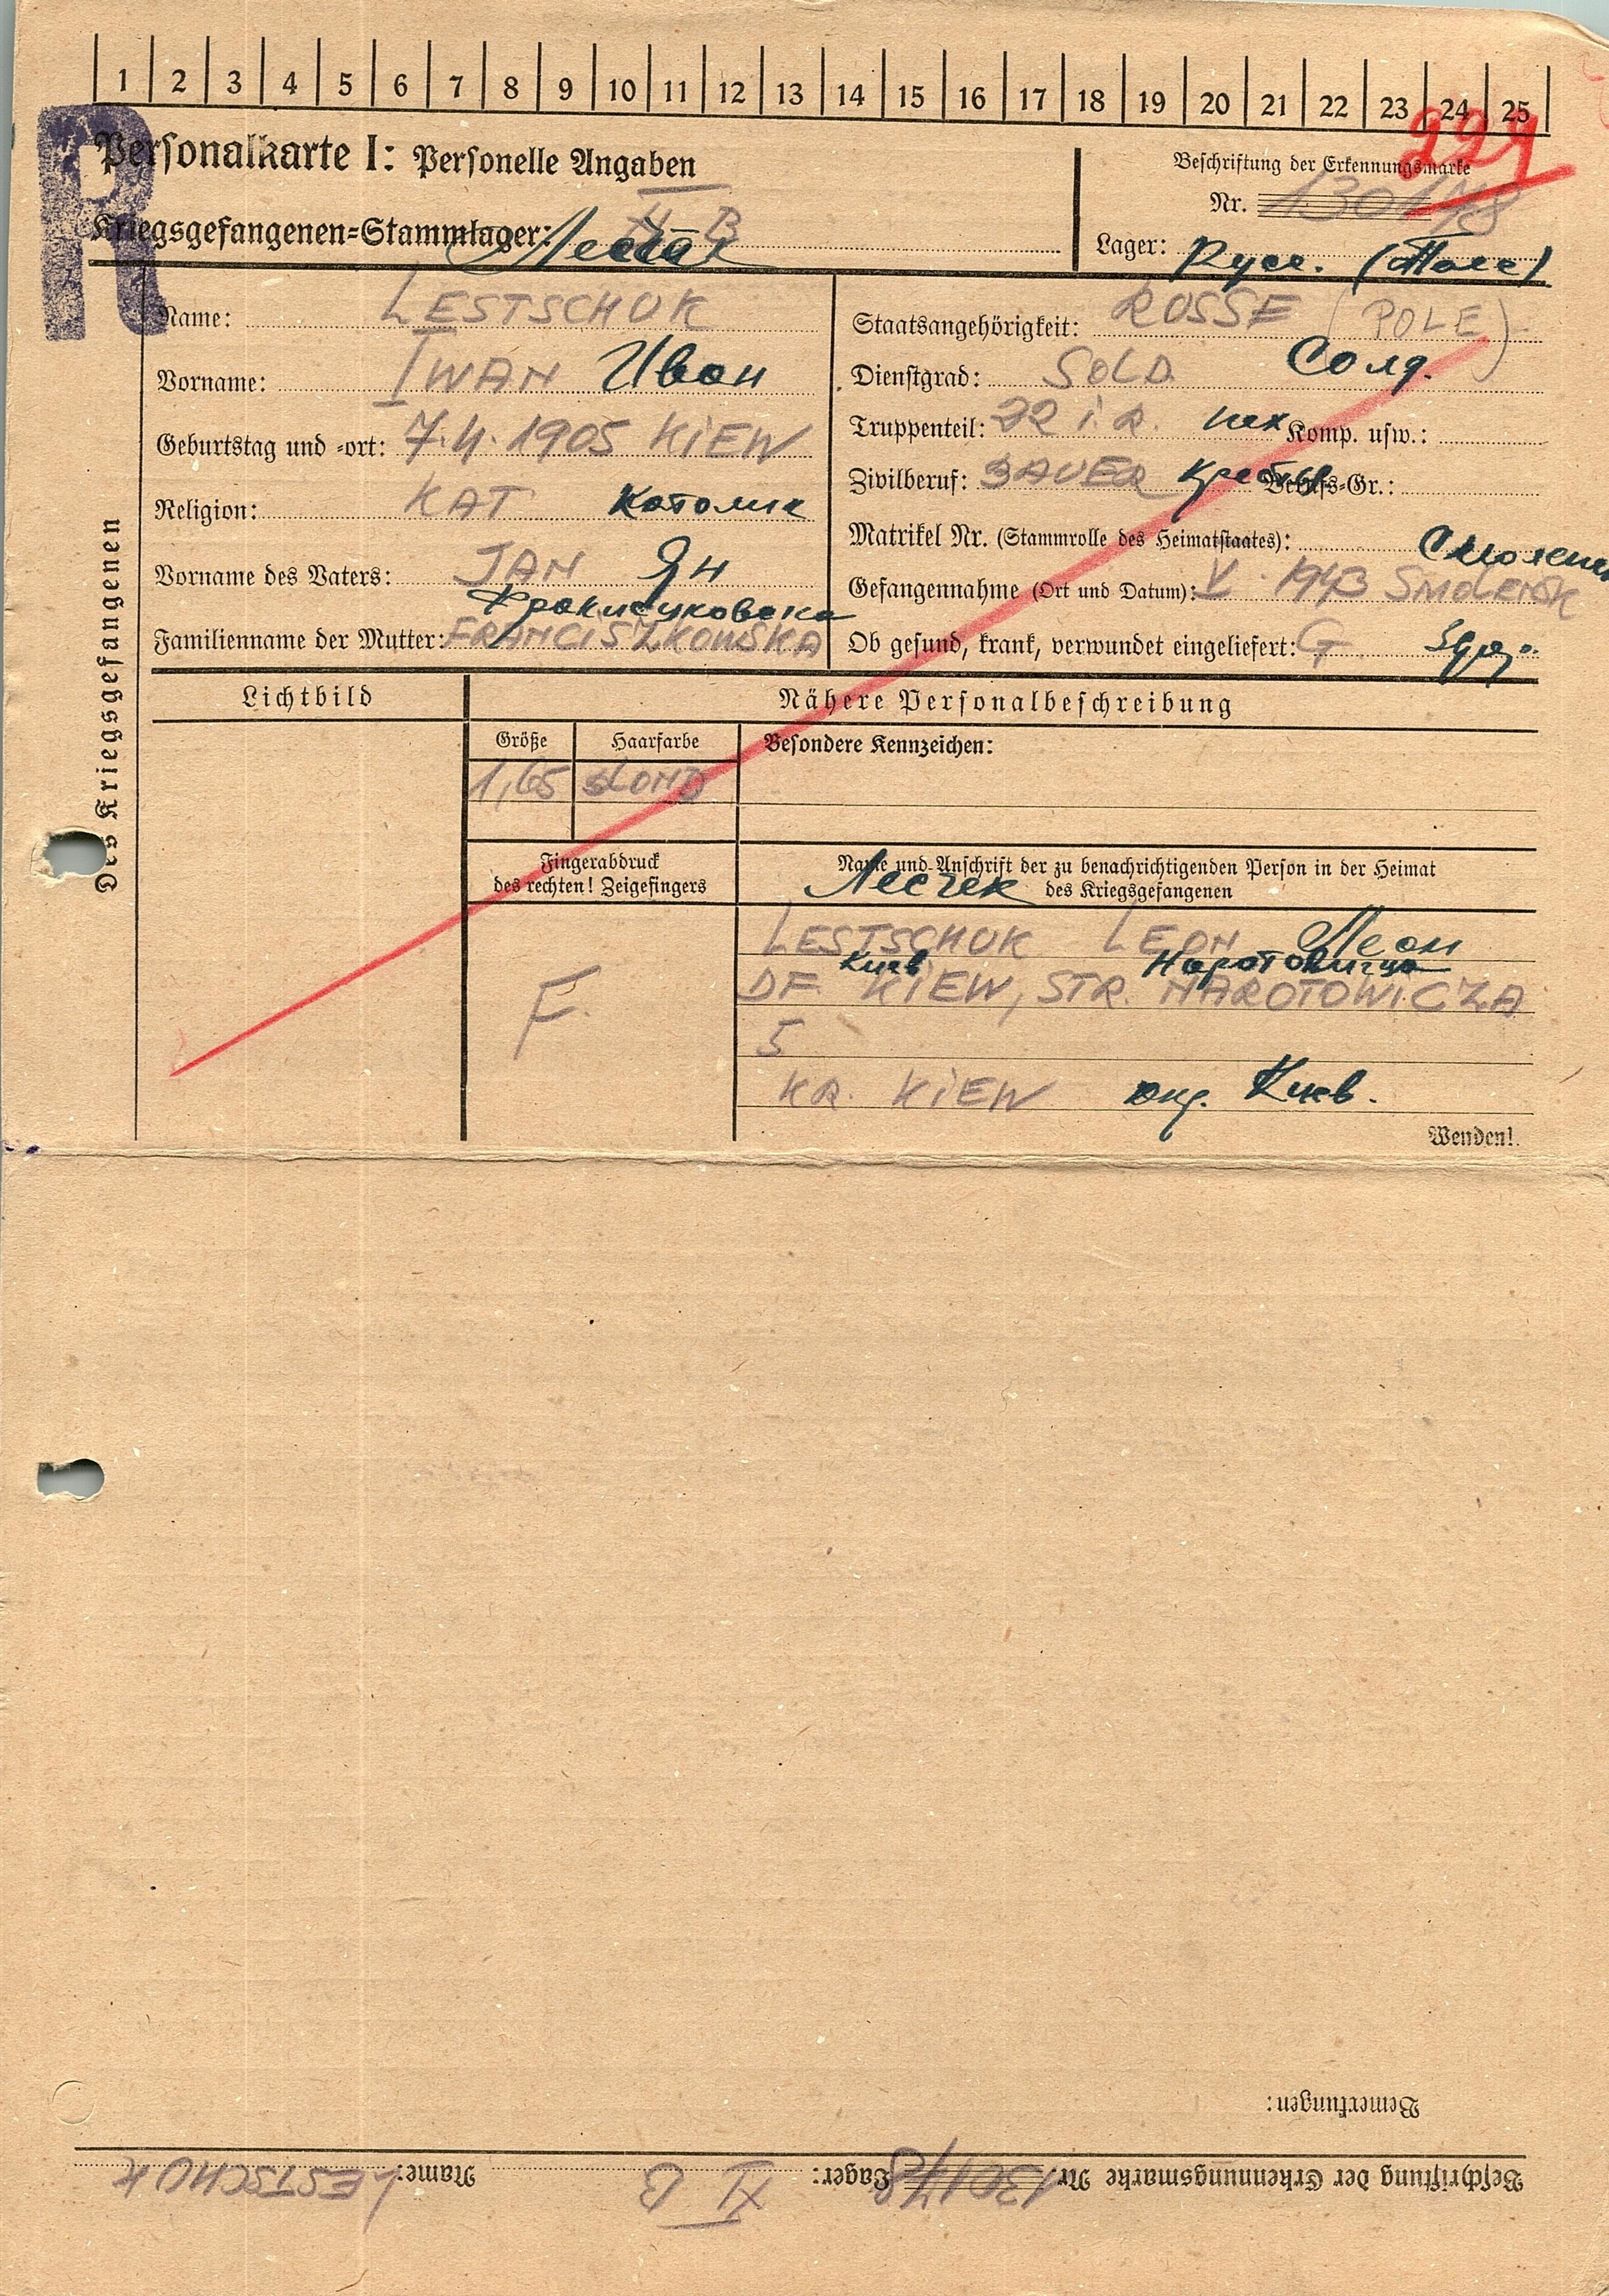 1 2 3 4 5 6 7 8 9 10 11 12 13 14 15 16 17 18 19 20 21 22 23 24 25
R
Personalkarte I: Personelle Angaben
Beschriftung der Erkennungsmarke
Nr. 130178
Kriegsgefangenen-Stammlager: XI B
Lager: Русс. (Поле)
Des Kriegsgefangenen
Name: LESTSCHUK
Staatsangehörigkeit: RUSSE (POLE)
Vorname: IWAN Иван
Dienstgrad: SOLD. Солд.
Geburtstag und -ort: 7.4.1905 KIEW
Truppenteil: 22 I.R. пех Komp. usw.:
Zivilberuf: BAUER Berufs-Gr.:
Religion: KAT Католик
Matrikel Nr. (Stammrolle des Heimatstaates):
Vorname des Vaters: JAN Ян
Gefangennahme (Ort und Datum): V. 1943 SMOLENSK
Familienname der Mutter: FRANCISZKOWSKA
Ob gesund, krank, verwundet eingeliefert: G
Lichtbild
Nähere Personalbeschreibung
Größe Haarfarbe Besondere Kennzeichen:
1,65 BLOND
Fingerabdruck
des rechten! Zeigefingers
Name und Anschrift der zu benachrichtigenden Person in der Heimat
des Kriegsgefangenen
LESTSCHUK LEON Леон
Киев
DF. KIEW, STR. NAROTOWICZA
5
F.
KR. KIEW окр. Киев.
Wenden!
Bemerkungen:
Beschriftung der Erkennungsmarke Nr. 130178 Lager: XI B Name: LESTSCHUK